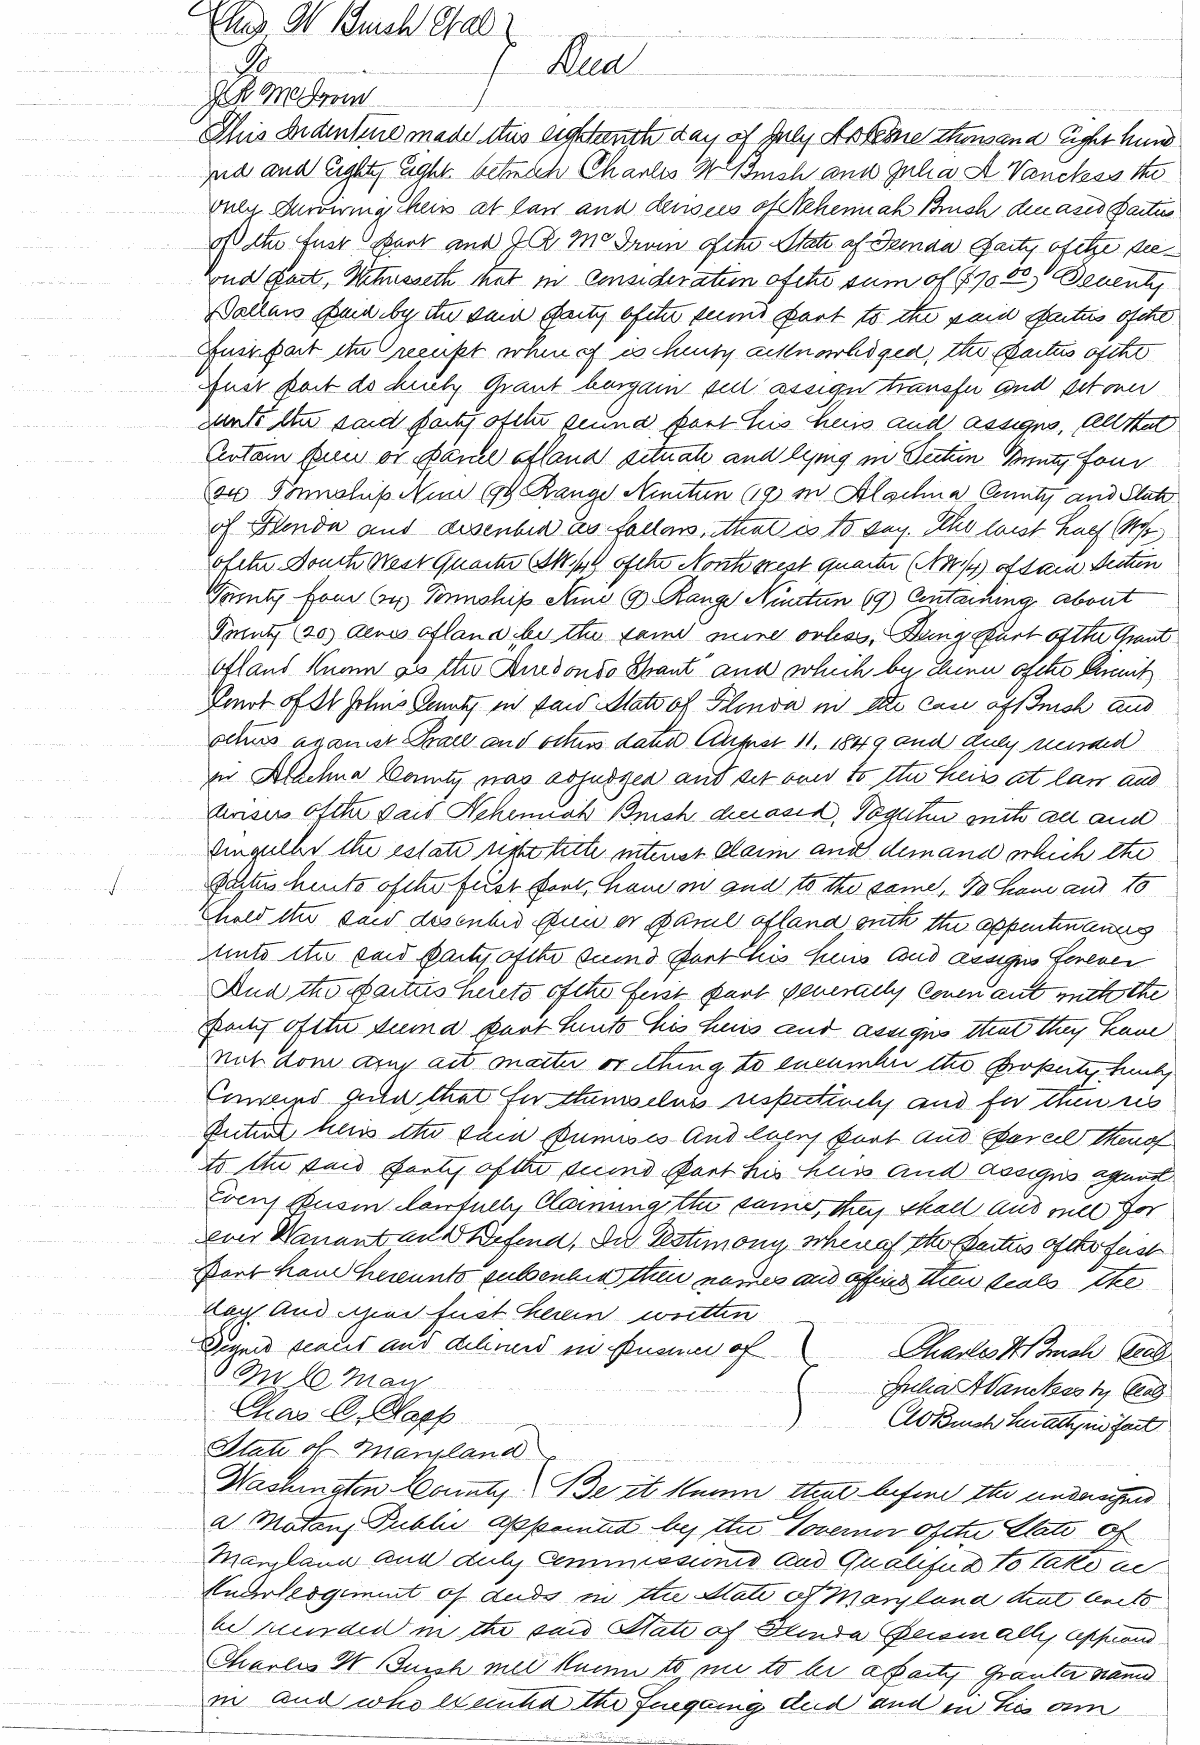 Chas W Brush Etal
To
Deed
J R McIrvin
This Indenture made this eighteenth day of July A.D. One thousand Eight hund
red and Eighty Eight. between Charles W Brush and Julia A Vanckess the
only surviving heirs at law and devisees of Nehemiah Brush deceased parties
of the first part and J R McIrvin of the State of Florida party of the sec-
ond part, Witnesseth that in consideration of the sum of ($70.00) Seventy
Dollars paid by the said party of the second part to the said parties of the
first part the receipt where of is hereby acknowledged, the parties of the
first part do hereby Grant bargain sell assign transfer and set over
unto the said party of the second part his heirs and assigns, All that
Certain piece or parcel of land situate and lying in Section Twenty four
(24) Township Nine (9) Range Nineteen (19) in Alachua County and State
of Florida and described as follows, that is to say. The west half (W½)
of the South West Quarter (SW¼) of the North west quarter (NW¼) of said Section
Twenty four (24) Township Nine (9) Range Nineteen (19) Containing about
Twenty (20) acres of land be the same more or less, Being part of the Grant
of land Known as the "Arredondo Grant" and which by decree of the Circuit
Court of St Johns County in said State of Florida in the case of Brush and
others against and others dated August 11, 1849 and duly recorded
in Alachua County was adjudged and set over to the heirs at law and
devisees of the said Nehemiah Brush deceased, Together with all and
singular the estate right title interest claim and demand which the
parties hereto of the first part, have in and to the same, To have and to
hold the said described piece or parcel of land with the appurtenances
unto the said party of the second part his heirs and assigns forever
And the parties hereto of the first part severally covenant with the
party of the second part hereto his heirs and assigns that they have
not done any act matter or thing to encumber the property hereby
Conveyed and that for themselves respectively and for their res
pective heirs the said premises and every part and parcel thereof
to the said party of the second part his heirs and assigns against
Every person lawfully Claiming the same, they shall and will for
ever Warrant and Defend, In Testimony whereof the parties of the first
part have hereunto subscribed their names and affixed their seals the
day and year first herein written
Signed sealed and delivered in presence of
Charles W Brush (seal)
M C May
Julia A Vanckess by (seal)
Chas C. Clapp
C W Brush her atty in fact
State of Maryland
Washington County Be it Known that before the undersigned
a Notary Public appointed by the Governor of the State of
Maryland and duly commissioned and Qualified to take ac
Knowledgement of deeds in the State of Maryland that are to
be recorded in the said State of Florida personally appeared
Charles W Brush well Known to me to be a party grantor named
in and who executed the foregoing deed and in his own